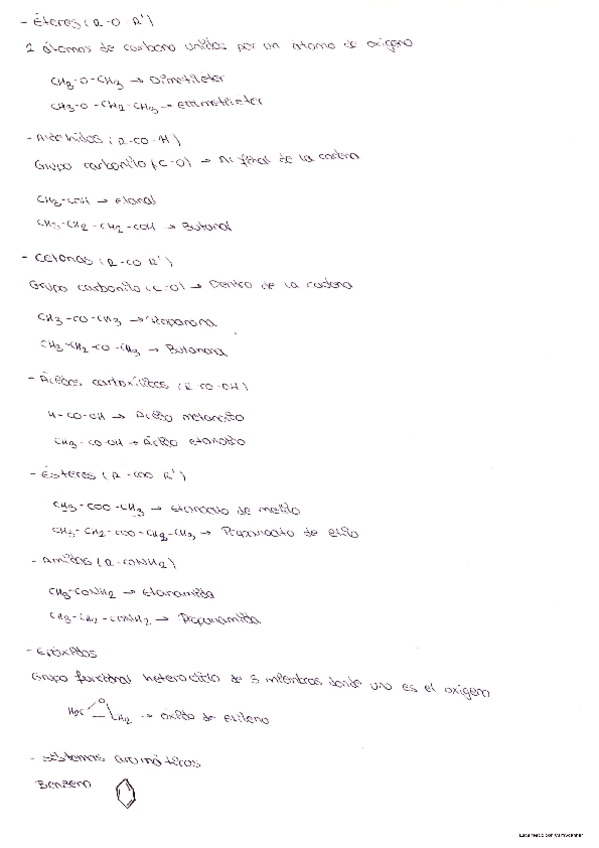 - Éteres (R-O-R')
2 átomos de carbono unidos por un átomo de oxígeno
CH3-O-CH3 → Dimetileter
CH3-O-CH2-CH3 → etilmetileter
- Aldehidos (R-CO-H)
Grupo carbonilo (C-O) → Al final de la cadena
CH3-COH → Etanal
CH3-CH2-CH2-COH → Butanal
- Cetonas (R-CO R')
Grupo carbonilo (C-O) → Dentro de la cadena
CH3-CO-CH3 → Propanona
CH3-CH2-CO-CH3 → Butanona
- Ácidos carboxílicos (R-CO-OH)
H-CO-OH → Ácido metanoico
CH3-CO-OH → Ácido etanoico
- Ésteres (R-COO R')
CH3-COO-CH3 → etanoato de metilo
CH3-CH2-COO-CH2-CH3 → Propanoato de etilo
- Amidas (R-CONH2)
CH3-CONH2 → Etanamida
CH3-CH2-CONH2 → Propanamida
- Epóxidos
Grupo funcional heterociclo de 3 miembros donde uno es el oxígeno
H2C O CH2 → óxido de etileno
- Sistemas aromáticos
Benceno